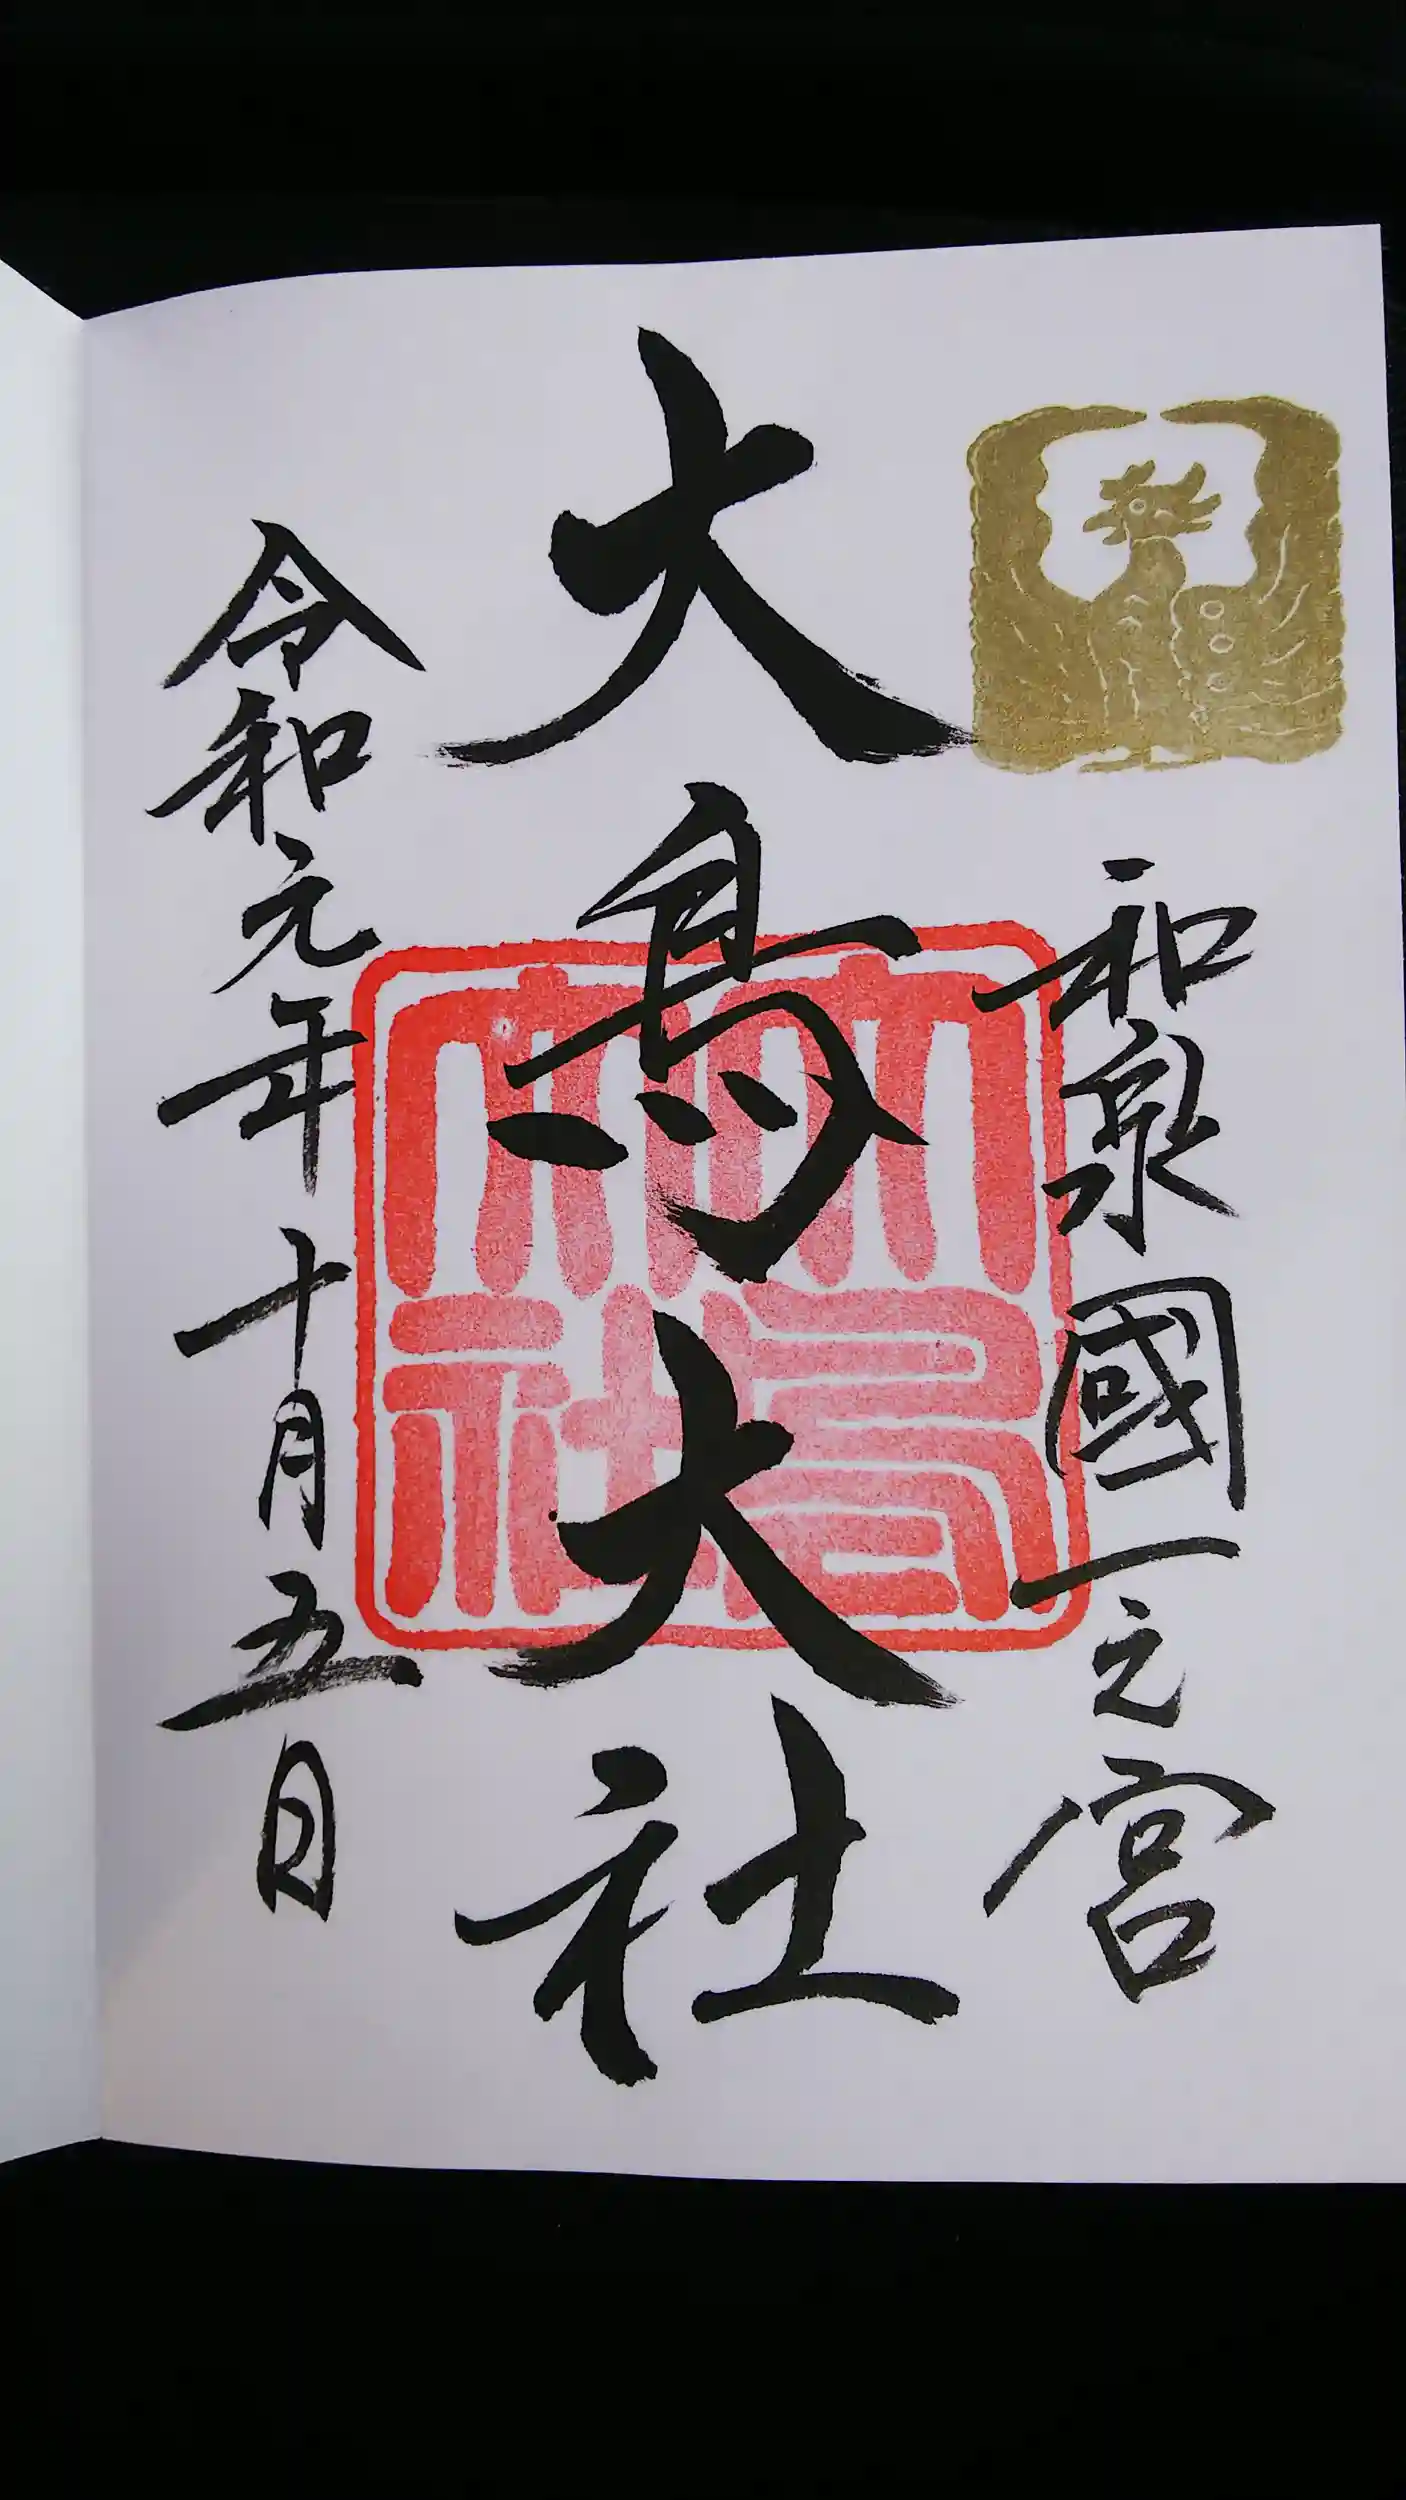 和泉國一之宮
大鳥大社
令和元年十月五日
大鳥大社